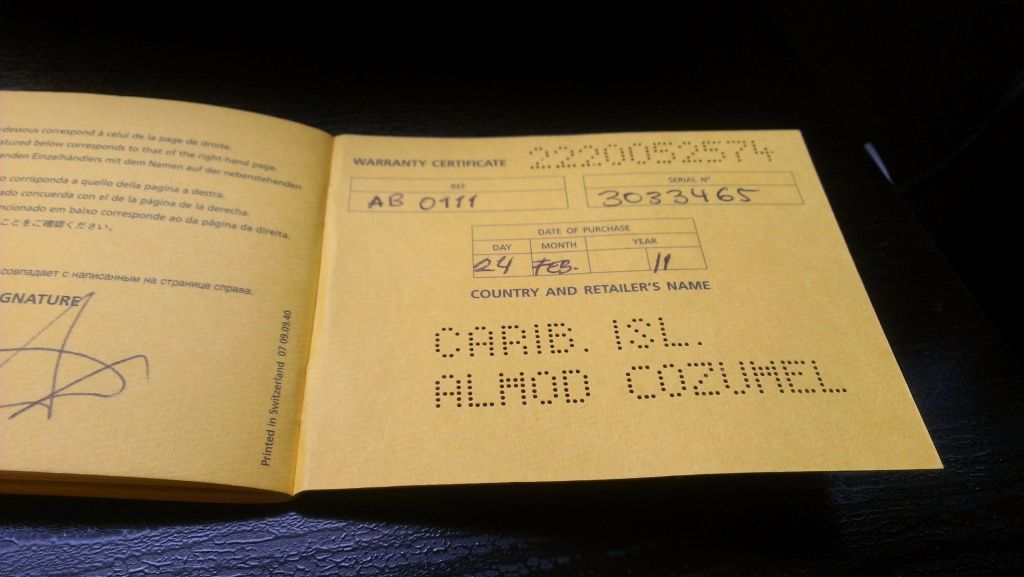 -dessous correspond à celui de la page de droite.
atured below corresponds to that of the right-hand page.
enden Einzelhändlers mit dem Namen auf der nebenstehenden
o corrisponda a quello della pagina a destra.
ado concuerda con el de la página de la derecha.
ncionado em baixo corresponde ao da página da direita.
ことをご確認ください。
совпадает с написанным на странице справа.
GNATURE
Printed in Switzerland 07 09.09.40
WARRANTY CERTIFICATE 2220052574
REF. SERIAL N°
AB 0111 3033465
DATE OF PURCHASE
DAY MONTH YEAR
24 FEB. 11
COUNTRY AND RETAILER'S NAME
CARIB. ISL.
ALMOD COZUMEL